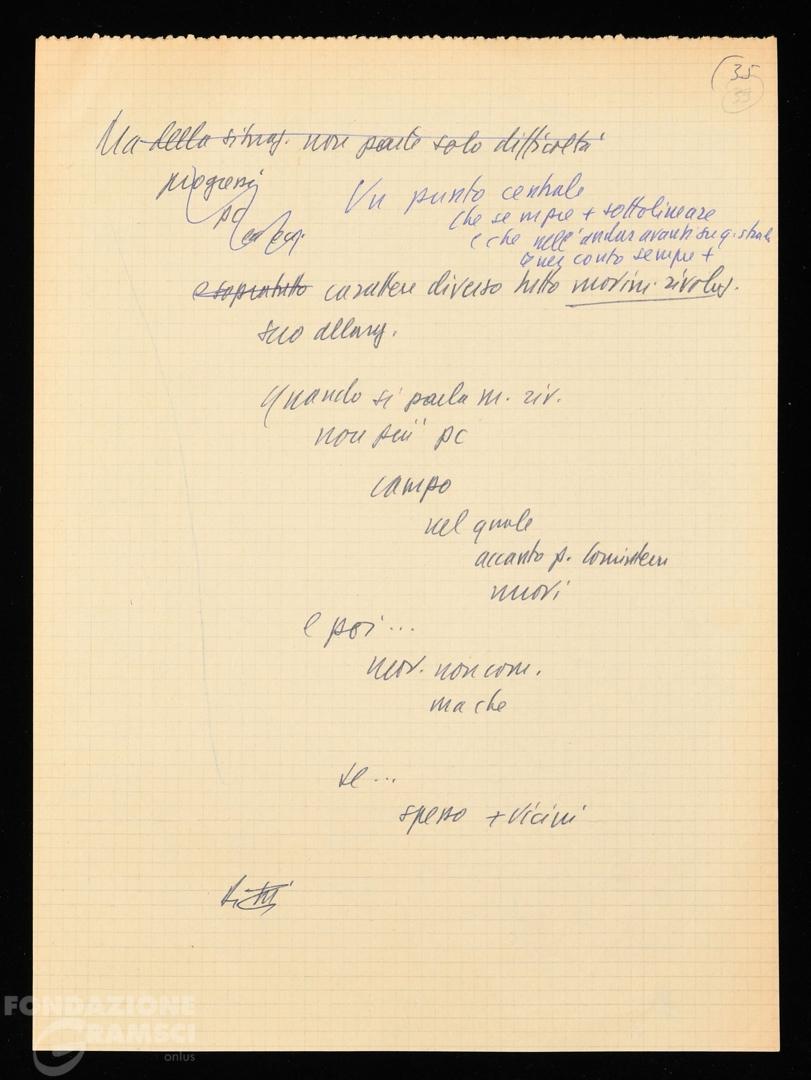 35
35
Ma della situaz. non parla solo difficoltà
progressi
pc
Un punto centrale
che sempre + sottolineare
e che nell'andar avanti su q. strada
conto sempre +
e sopratutto carattere diverso tutto movim. rivoluz.
suo allarg.
Quando si parla m. riv.
non più pc
campo
nel quale
accanto p. Comintern
nuovi
e poi...
mov. non com.
ma che
se...
spesso + vicini
FONDAZIONE
GRAMSCI
onlus